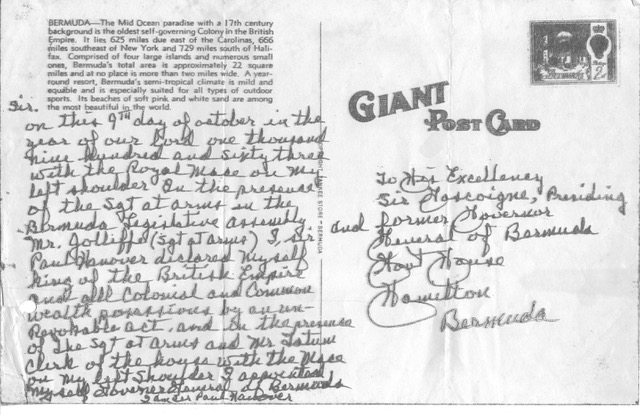 BERMUDA—The Mid Ocean paradise with a 17th century
background is the oldest self-governing Colony in the British
Empire. It lies 625 miles due east of the Carolinas, 666
miles southeast of New York and 729 miles south of Hali-
fax. Comprised of four large islands and numerous small
ones, Bermuda's total area is approximately 22 square
miles and at no place is more than two miles wide. A year-
round resort, Bermuda's semi-tropical climate is mild and
equible and is especially suited for all types of outdoor
sports. Its beaches of soft pink and white sand are among
the most beautiful in the world.
Sir.
on this 9TH day of october in the
year of our Lord one thousand
nine hundred and sixty three
with the Royal Mace on my
left shoulder In the presense
of the Sgt at arms in the
Bermuda Legislative assembly
Mr. Jolliffe (Sgt at arms) I, Sir
Paul Hanover declared Myself
King of the British Empire
and all Colonial and Common
wealth possessions by an un-
Revokable act. and In the presense
of The Sgt at Arms and Mr Tatum
Clerk of the house with the Mace
on My left Shoulder I appointed
Myself Governor General of Bermuda
I am Sir Paul Hanover
STORE - BERMUDA
GIANT
POST CARD
To His Excellency
Sir Gascoigne, Presiding
and former Governor
General of Bermuda
Govt House
Hamilton
Bermuda